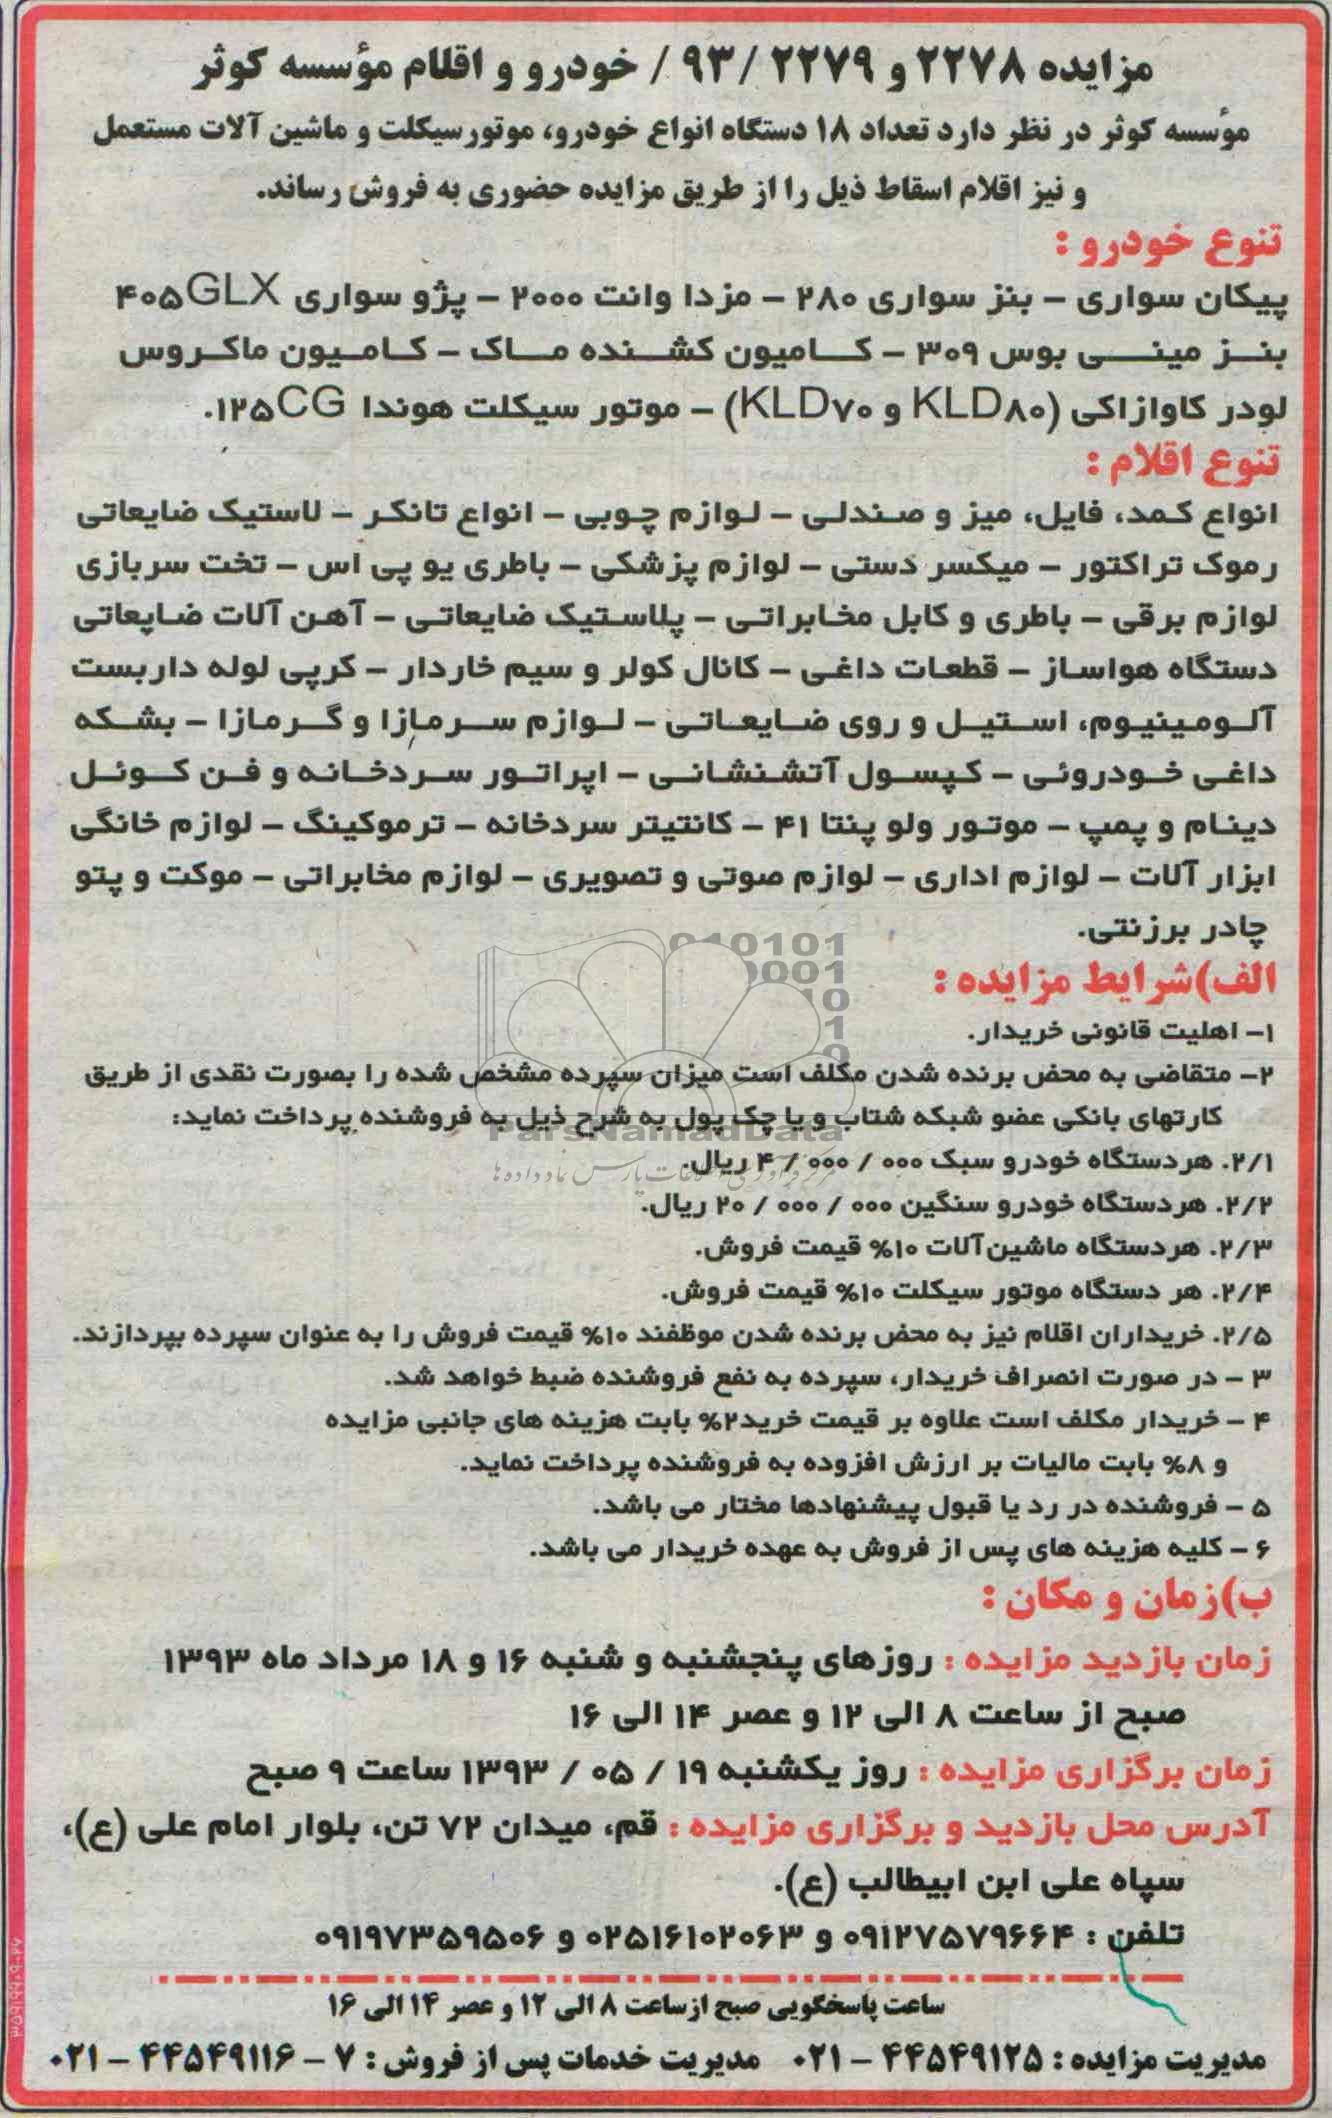 مزایده ۲۲۷۸ و ۲۲۷۹ /۹۳ / خودرو و اقلام مؤسسه کوثر
مؤسسه کوثر در نظر دارد تعداد ۱۸ دستگاه انواع خودرو، موتورسیکلت و ماشین آلات مستعمل
و نیز اقلام اسقاط ذیل را از طریق مزایده حضوری به فروش رساند.
تنوع خودرو :
پیکان سواری – بنز سواری ۲۸۰ – مزدا وانت ۲۰۰۰ – پژو سواری ۴۰۵GLX
بنز مینی بوس ۳۰۹ – کامیون کشنده ماک – کامیون ماکروس
لودر کاوازاکی (KLD۸۰ و KLD۷۰) – موتور سیکلت هوندا ۱۲۵CG.
تنوع اقلام :
انواع کمد، فایل، میز و صندلی – لوازم چوبی – انواع تانکر – لاستیک ضایعاتی
رموک تراکتور – میکسر دستی – لوازم پزشکی – باطری یو پی اس – تخت سربازی
لوازم برقی – باطری و کابل مخابراتی – پلاستیک ضایعاتی – آهن آلات ضایعاتی
دستگاه هواساز – قطعات داغی – کانال کولر و سیم خاردار – کرپی لوله داربست
آلومینیوم، استیل و روی ضایعاتی – لوازم سرمازا و گرمازا – بشکه
داغی خودروئی – کپسول آتشنشانی – اپراتور سردخانه و فن کوئل
دینام و پمپ – موتور ولو پنتا ۴۱ – کانتیتر سردخانه – ترموکینگ – لوازم خانگی
ابزار آلات – لوازم اداری – لوازم صوتی و تصویری – لوازم مخابراتی – موکت و پتو
چادر برزنتی.
الف)شرایط مزایده :
۱– اهلیت قانونی خریدار.
۲– متقاضی به محض برنده شدن مکلف است میزان سپرده مشخص شده را بصورت نقدی از طریق
کارتهای بانکی عضو شبکه شتاب و یا چک پول به شرح ذیل به فروشنده پرداخت نماید:
ParsNamadData
۲/۱. هردستگاه خودرو سبک ۰۰۰ / ۰۰۰ / ۴ ریال.
مرکز فرآوری اطلاعات پارس نماد داده ها
۲/۲. هردستگاه خودرو سنگین ۰۰۰ / ۰۰۰ / ۲۰ ریال.
۲/۳. هردستگاه ماشین‌آلات ۱۰% قیمت فروش.
۲/۴. هر دستگاه موتور سیکلت ۱۰% قیمت فروش.
۲/۵. خریداران اقلام نیز به محض برنده شدن موظفند ۱۰% قیمت فروش را به عنوان سپرده بپردازند.
۳ – در صورت انصراف خریدار، سپرده به نفع فروشنده ضبط خواهد شد.
۴ – خریدار مکلف است علاوه بر قیمت خرید۲% بابت هزینه های جانبی مزایده
و ۸% بابت مالیات بر ارزش افزوده به فروشنده پرداخت نماید.
۵ – فروشنده در رد یا قبول پیشنهادها مختار می باشد.
۶ – کلیه هزینه های پس از فروش به عهده خریدار می باشد.
ب)زمان و مکان :
زمان بازدید مزایده : روزهای پنجشنبه و شنبه ۱۶ و ۱۸ مرداد ماه ۱۳۹۳
صبح از ساعت ۸ الی ۱۲ و عصر ۱۴ الی ۱۶
زمان برگزاری مزایده : روز یکشنبه ۱۹ / ۰۵ / ۱۳۹۳ ساعت ۹ صبح
آدرس محل بازدید و برگزاری مزایده : قم، میدان ۷۲ تن، بلوار امام علی (ع)،
سپاه علی ابن ابیطالب (ع).
تلفن : ۰۹۱۲۷۵۷۹۶۶۴ و ۰۲۵۱۶۱۰۲۰۶۳ و ۰۹۱۹۷۳۵۹۵۰۶
ساعت پاسخگویی صبح از ساعت ۸ الی ۱۲ و عصر ۱۴ الی ۱۶
مدیریت مزایده : ۴۴۵۴۹۱۲۵ – ۰۲۱ مدیریت خدمات پس از فروش : ۷ – ۴۴۵۴۹۱۱۶ – ۰۲۱